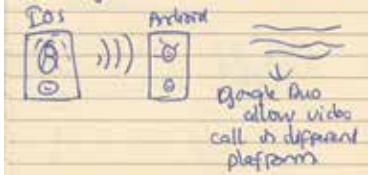 IOS
Android
Google Duo
allow video
call in different
platform